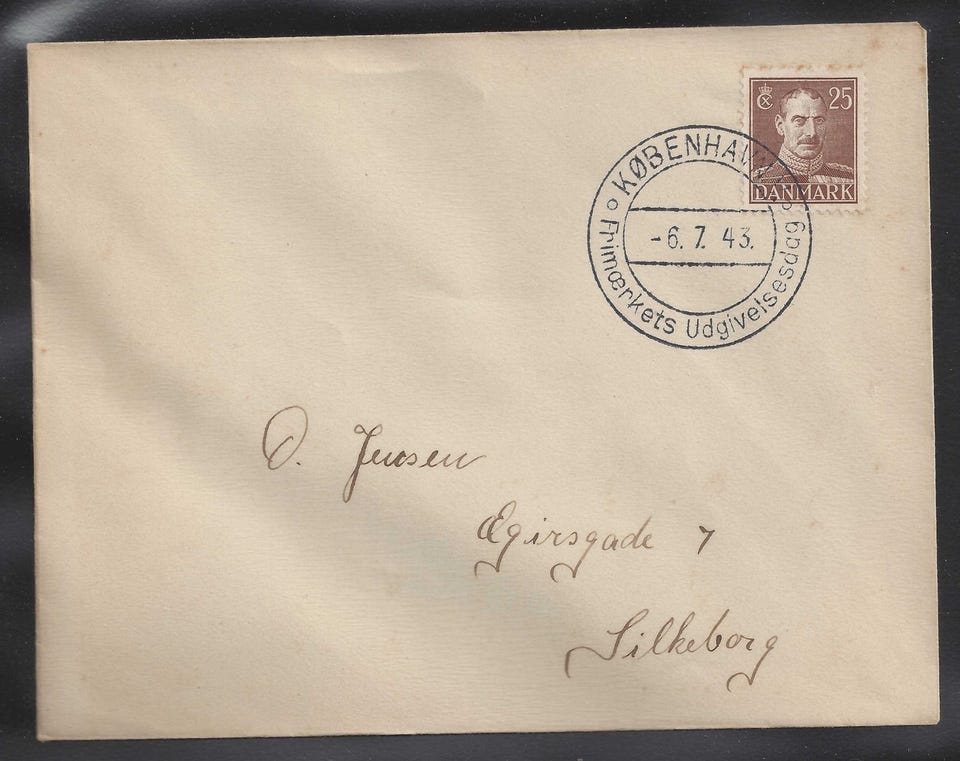 CX 25
DANMARK
KØBENHAVN
-6. 7. 43.
Frimærkets Udgivelsesdag
O. Jensen
Ægirsgade 7
Silkeborg